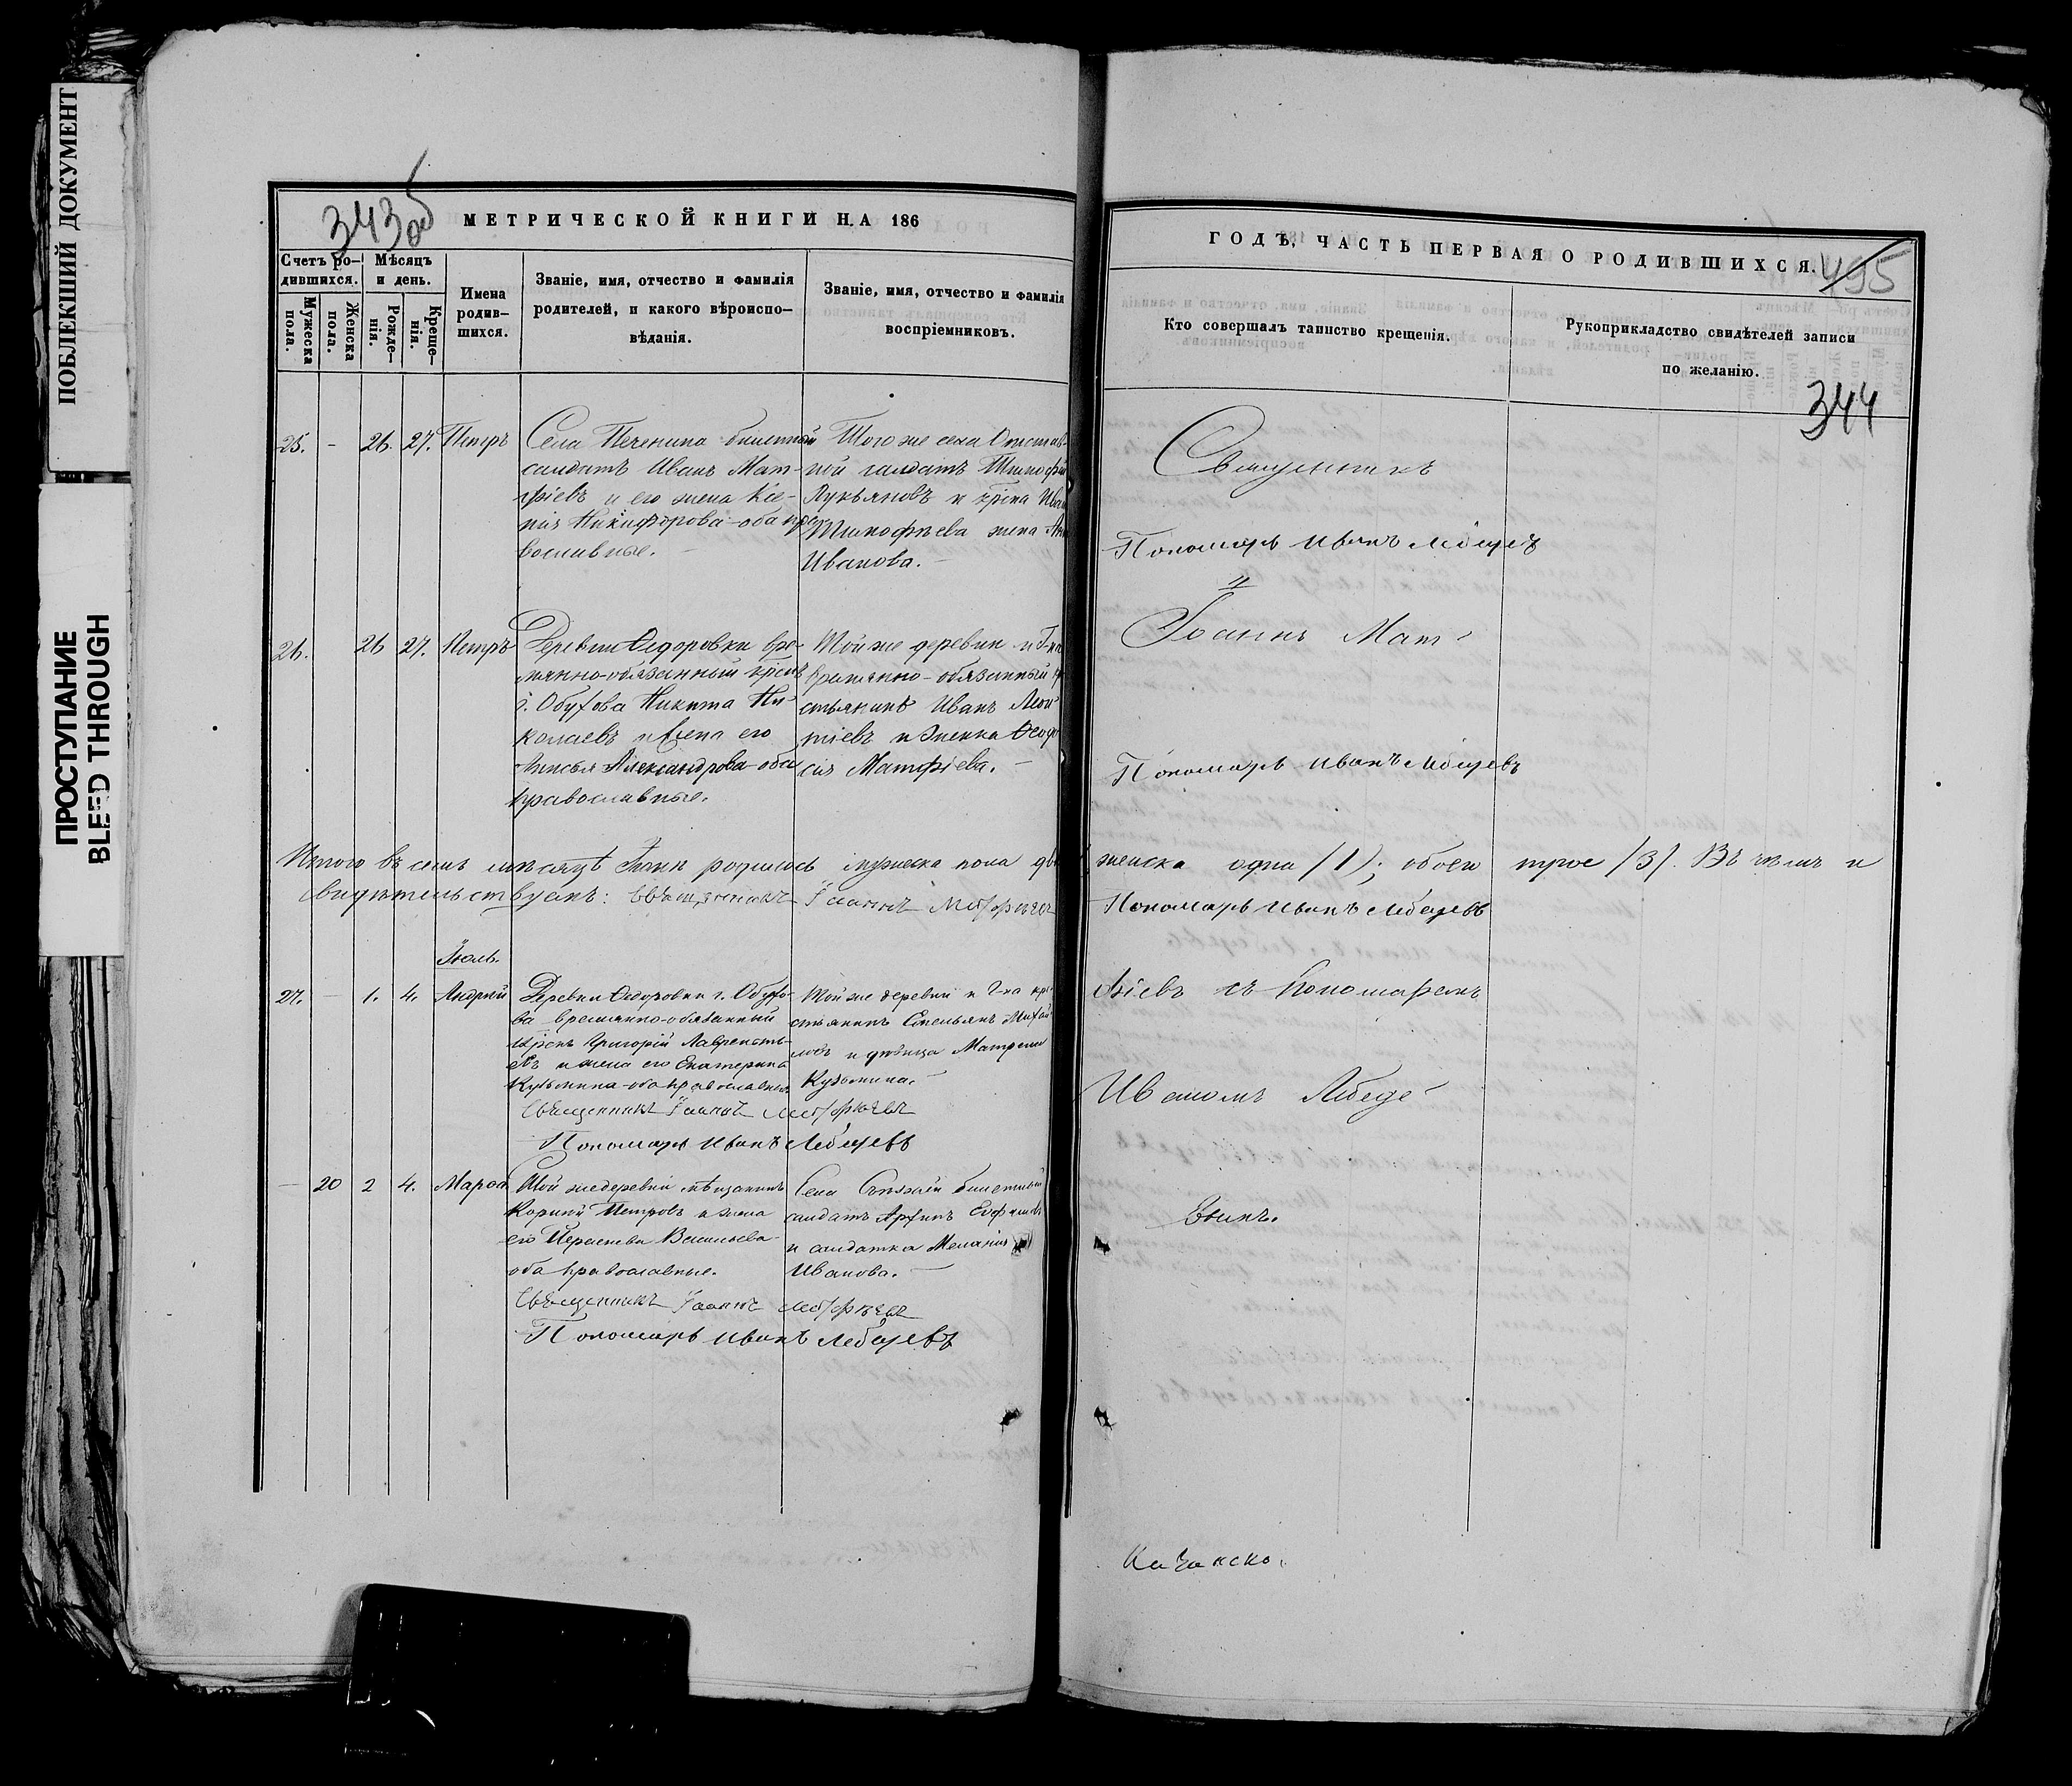 ПОБЛЕКШИЙ ДОКУМЕНТ
ПРОСТУПАНИЕ
BLEED THROUGH
343 об
МЕТРИЧЕСКОЙ КНИГИ НА 186
Счетъ ро-
дившихся.
Мѣсяцъ
и день.
Мужеска
пола.
Женска
пола.
Рожде-
нія.
Креще-
нія.
Имена
родив-
шихся.
Званіе, имя, отчество и фамилія
родителей, и какого вѣроиспо-
вѣданія.
Званіе, имя, отчество и фамилія
воспріемниковъ.
25. - 26. 27. Петръ
Села Печенина билетный
салдатъ Иванъ Мат-
фіевъ и его жена Ксе-
нія Никифорова - оба пра
вославные.
Того же села Отстав-
ной салдатъ Тимофей
Лукьяновъ и кр-на Ива
Тимофѣева жена Ан
Иванова.
26. 26 27. Петръ
Деревни Ѳедоровки вре-
мянно-обязанный крест
г. Обухова Никита Ни-
колаевъ и жена его
Александрова - оба
православные.
Той же деревни и Г-на
времянно-обязанный кр
стьянинъ Иванъ Леон
тіевъ и Ѳеодо
сія Матфіева.
Итого въ семъ мѣсяцѣ Іюнѣ родилось мужеска пола два
свидѣтельствуемъ: Священникъ Іоаннъ Матфѣевъ
Іюль.
27. - 1. 4. Андрей
Деревни Ѳедоровки г. Обухо-
ва времянно-обязанный
крест Григорій Лавренть-
евъ и жена его Екатерина
Кузьмина - оба православные
Той же деревни и Г-на кре-
стьянинъ Емельянъ Михай-
ловъ и дѣвица Матрена
Кузьмина.
Священникъ Іоаннъ Матфѣевъ
Пономарь Иванъ Лебедевъ
- 20 2 4. Марѳа
Той же деревни мѣщанинъ
Корнилій Петровъ и жена
его Васильева
оба православные.
Села билетный
салдатъ Архипъ Евфимов
и салдатка Меланія
Иванова.
Священникъ Іоаннъ Матфѣевъ
Пономарь Иванъ Лебедевъ
ГОДЪ, ЧАСТЬ ПЕРВАЯ О РОДИВШИХСЯ.
495
Кто совершалъ таинство крещенія.
Рукоприкладство свидѣтелей записи
по желанію.
344
Священникъ
Пономарь Иванъ Лебедевъ
Іоаннъ Мат-
Пономарь Иванъ Лебедевъ
женска одна /1/; обоего трое /3/. Въ чемъ и
Пономарь Иванъ Лебедевъ
фіевъ съ Пономаремъ
Иваномъ Лебеде-
вымъ.
Казанско